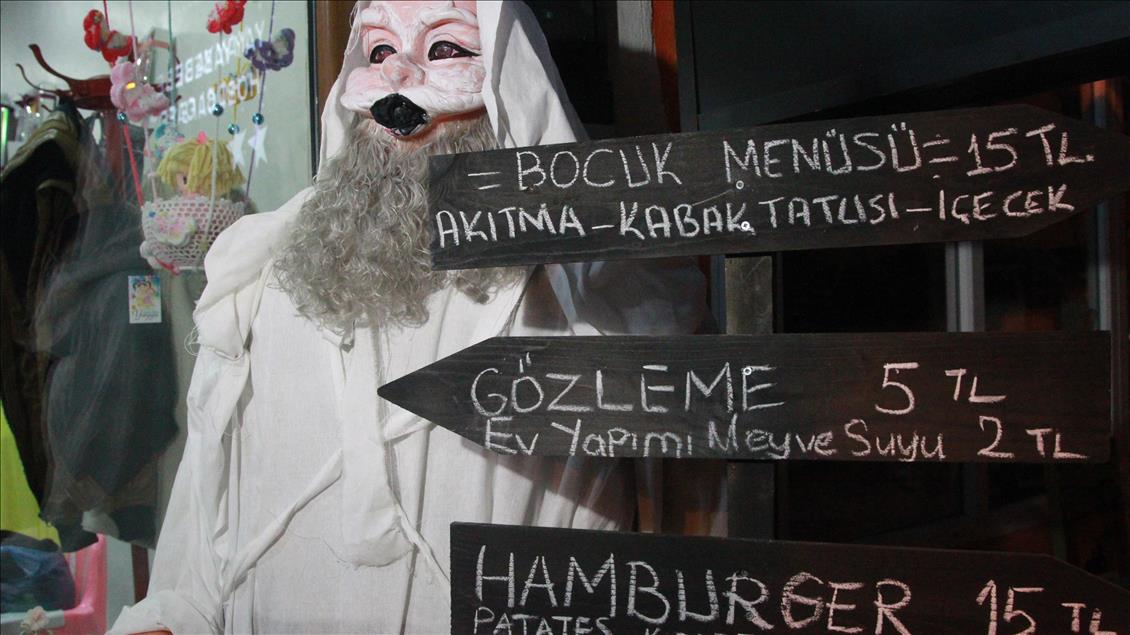 = BOCUK MENÜSÜ = 15 TL.
AKITMA - KABAK TATLISI - İÇECEK
GÖZLEME 5 TL
Ev Yapımı Meyve Suyu 2 TL
HAMBURGER 15 TL
PATATES